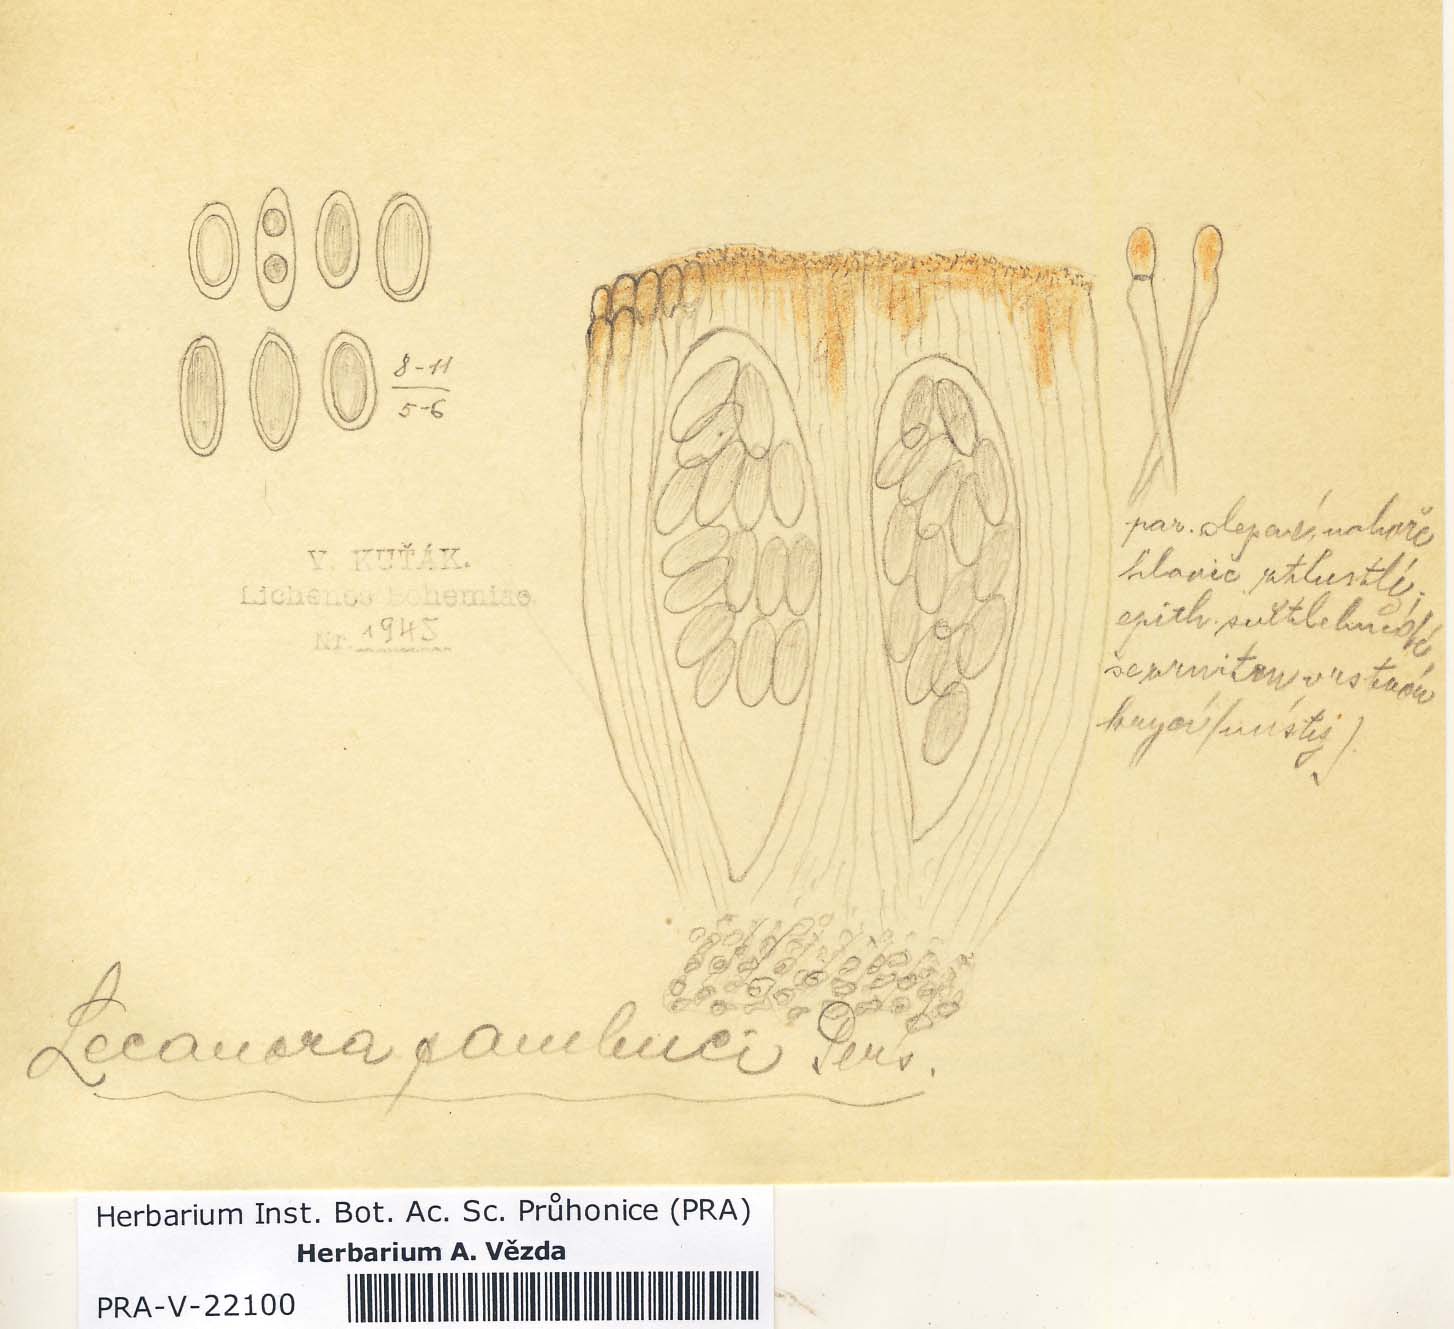 8-11
5-6
V. KUŤÁK.
Lichenes Bohemiae
Nr. 1945
par. slepené, nahoře
hlavič. ztlustlé,
epith. světlehnědé,
se zrnitou vrstvou
krycí (místy)
Lecanora sambuci Pers.
Herbarium Inst. Bot. Ac. Sc. Průhonice (PRA)
Herbarium A. Vězda
PRA-V-22100